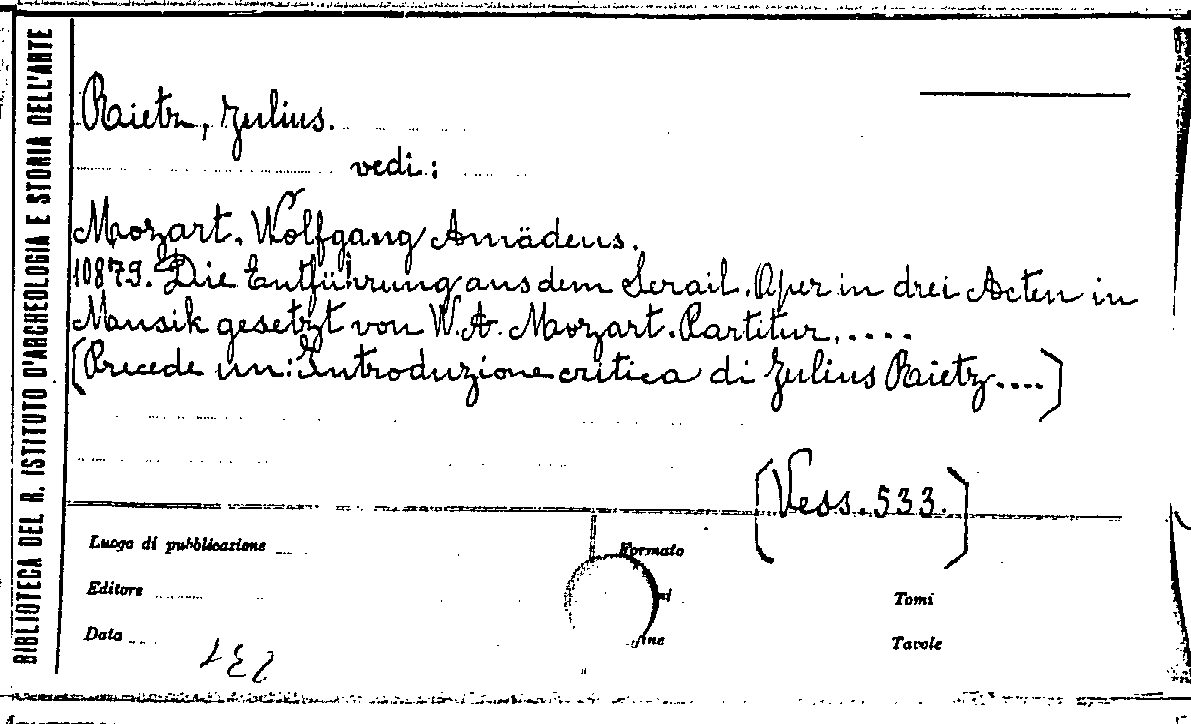 BIBLIOTECA DEL R. ISTITUTO D'ARCHEOLOGIA E STORIA DELL'ARTE
Rietz, Julius.
vedi:
Mozart. Wolfgang Amädeus.
10879. Die Entführung aus dem Serail. Oper in drei Acten in
Musik gesetzt von W. A. Mozart. Partitur.....
(Precede un: Introduzione critica di Julius Rietz....)
(Vess. 533.)
Luogo di pubblicazione
Formato
Editore
Tomi
Data
Tavole